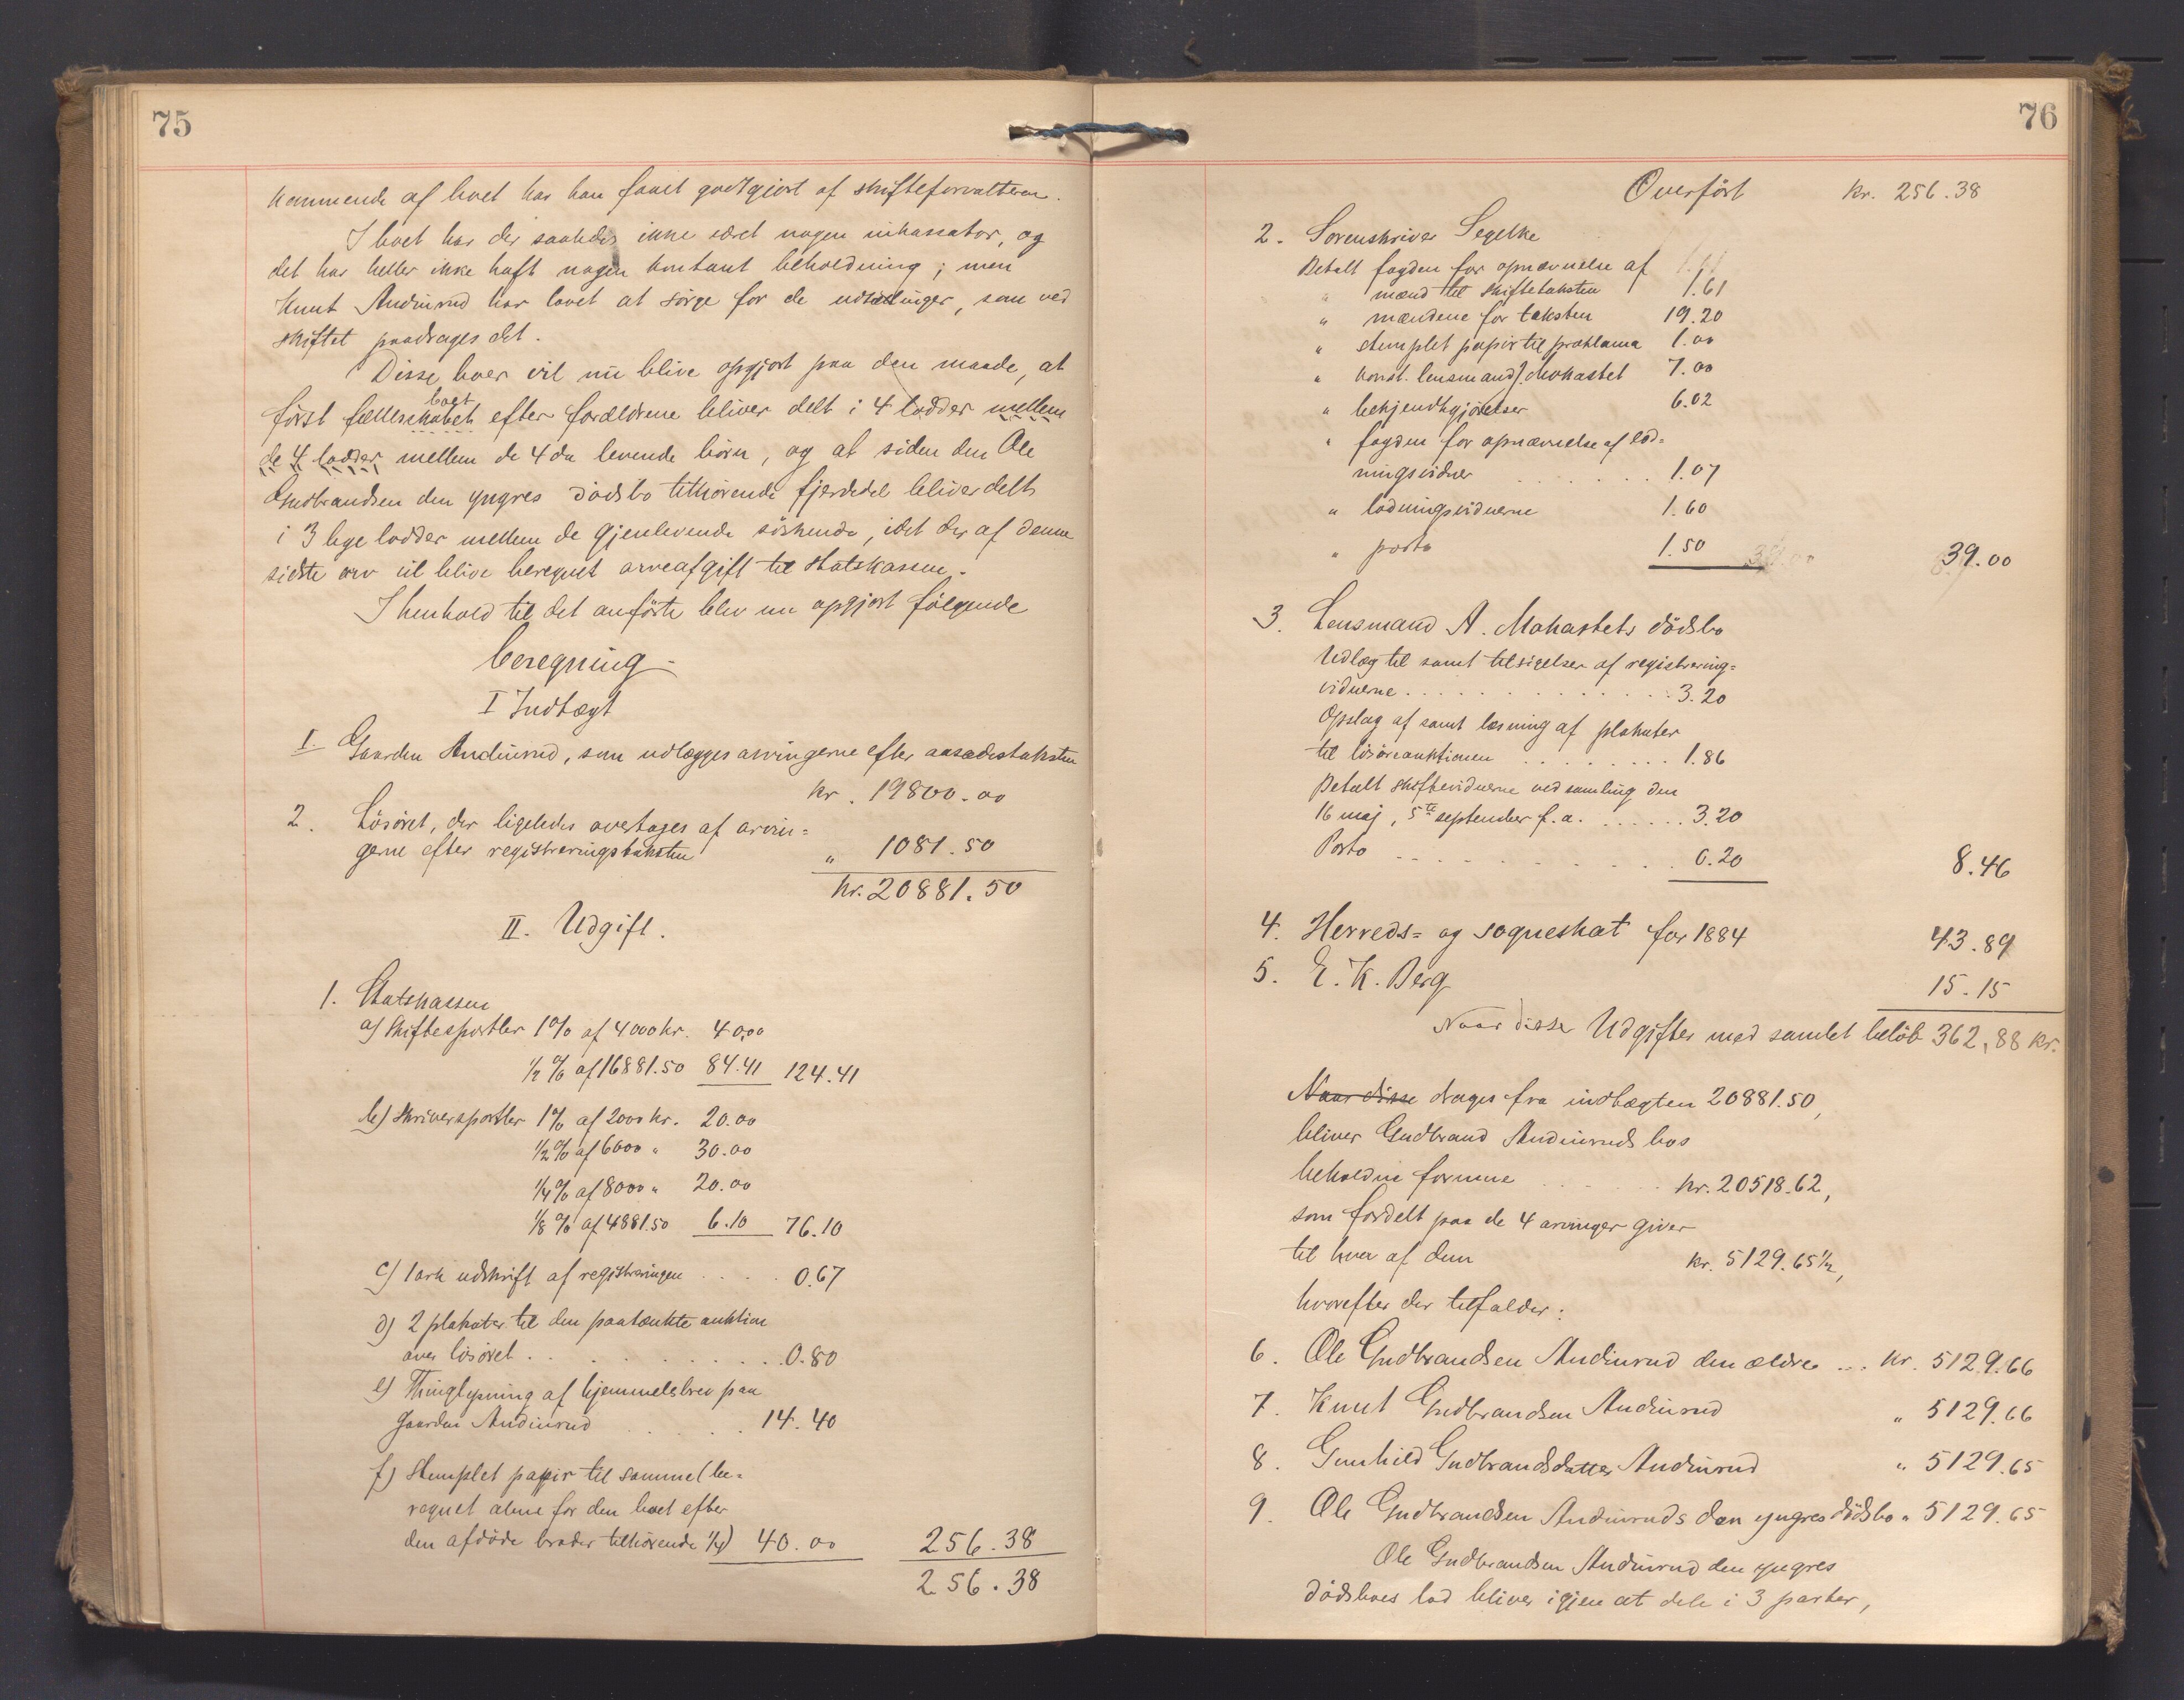 75
kommende af boet har han faaet godtgjort af skifteforvalteren.
I boet har der saaledes ikke været nogen inkassator, og
det har heller ikke haft nogen kontant beholdning; men
Knut Andinrud har lovet at sörge for de udtællinger, som ved
skiftet paadrages det.
Disse boer vil nu blive opgjort paa den maade, at
boet
först fællesskabet efter forældrene bliver delt i 4 lodder mellem
de 4 lodder mellem de 4 da levende börn, og at siden den Ole
Gudbrandsen den yngres dödsbo tilhörende fjerdedel bliver delt
i 3 lige lodder mellem de gjenlevende söskende, idet der af denne
sidste arv vil blive beregnet arveafgift til Statskassen.
I henhold til det anförte blev nu opgjort fölgende
beregning
I Indtægt
1. Gaarden Andinrud, som udlægges arvingerne efter aasædestaksten
kr. 19800.00
2. Lösöret, der ligeledes overtages af arvin=
gerne efter registreringstaksten " 1081.50
kr. 20881.50
II. Udgift.
1. Statskassen
a) Skiftesportler 1% af 4000 kr. 40.00
1/2 % af 16881.50 84.41 124.41
b) Skriversportler 1% af 2000 kr. 20.00
1/2 % af 6000 " 30.00
1/4 % af 8000 " 20.00
1/8 % af 4881.50 6.10 76.10
c) 1 ark udskrift af registreringen . . . . 0.67
d) 2 plakater til den paatænkte auktion
over lösöret . . . . . . . . . . . 0.80
e) Thinglysning af hjemmelsbrev paa
Gaarden Andinrud . . . . . 14.40
f) Stemplet papir til samme (be=
regnet alene for den boet efter
den afdöde broder tilhörende 1/4) 40.00 256.38
256.38
76
Overfört kr. 256.38
2. Sorenskriver Segelke
Betalt fogden for opnævnelse af
" mænd til skiftetaksten 1.61
" mændene for taksten 19.20
" stemplet papir til proklama 1.00
" konst. lensmand J. Mohastet 7.00
" bekjendtgjörelser 6.02
" fogden for opnævnelse af lod=
ningsvidner . . . . . . . 1.07
" lodningsvidnerne 1.60
" porto 1.50 39.00
3. Lensmand A. Mohastets dödsbo
Udlæg til samt tilsigelser af registrering=
vidnerne . . . . . . . . . . . . 3.20
Opslag af samt læsning af plakater
til lösöreauktionen . . . . . . . . 1.86
Betalt skiftevidnerne ved samling den
16 maj, 5te september f.a. . . . . . . 3.20
Porto . . . . . . . . . . . 0.20 8.46
4. Herreds= og sogneskat for 1884 43.89
5. E. K. Berg 15.15
Naar disse Udgifter med samlet belöb 362,88 kr.
Naar disse drages fra indtægten 20881.50,
bliver Gudbrand Andinruds bos
beholdne formue . . . . . kr. 20518.62,
som fordelt paa de 4 arvinger giver
til hver af dem kr. 5129.65 1/2,
hvorefter der tilfalder:
6. Ole Gudbrandsen Andinrud den ældre ... kr. 5129.66
7. Knut Gudbrandsen Andinrud " 5129.66
8. Gunhild Gudbrandsdatter Andinrud " 5129.65
9. Ole Gudbrandsen Andinruds den yngres dödsbo " 5129.65
Ole Gudbrandsen Andinrud den yngres
dödsboes lod bliver igjen at dele i 3 parter,